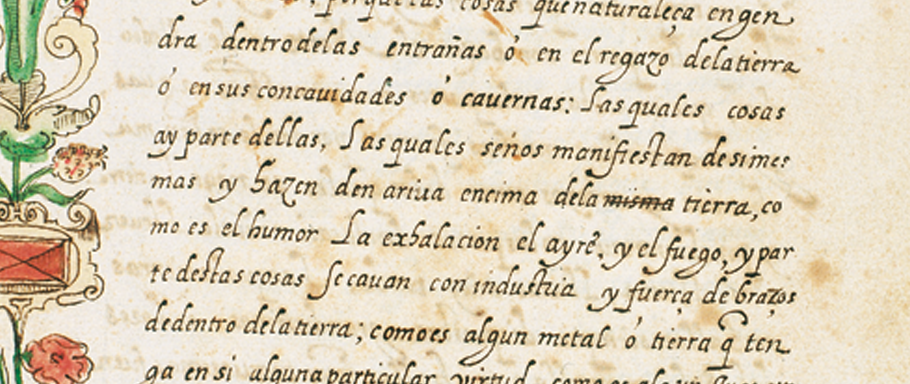 porque las cosas que naturaleça engen
dra dentro delas entrañas ó en el regazo dela tierra
ó en sus concauidades ó cauernas: Las quales cosas
ay parte dellas, Las quales senos manifiestan de si mes
mas y hazen den ariua encima dela misma tierra, co
mo es el humor La exhalacion el ayre, y el fuego, y par
te destas cosas se cauan con industria y fuerça de brazos
de dentro dela tierra; como es algun metal ó tierra q̃ ten
ga en si alguna particular virtud